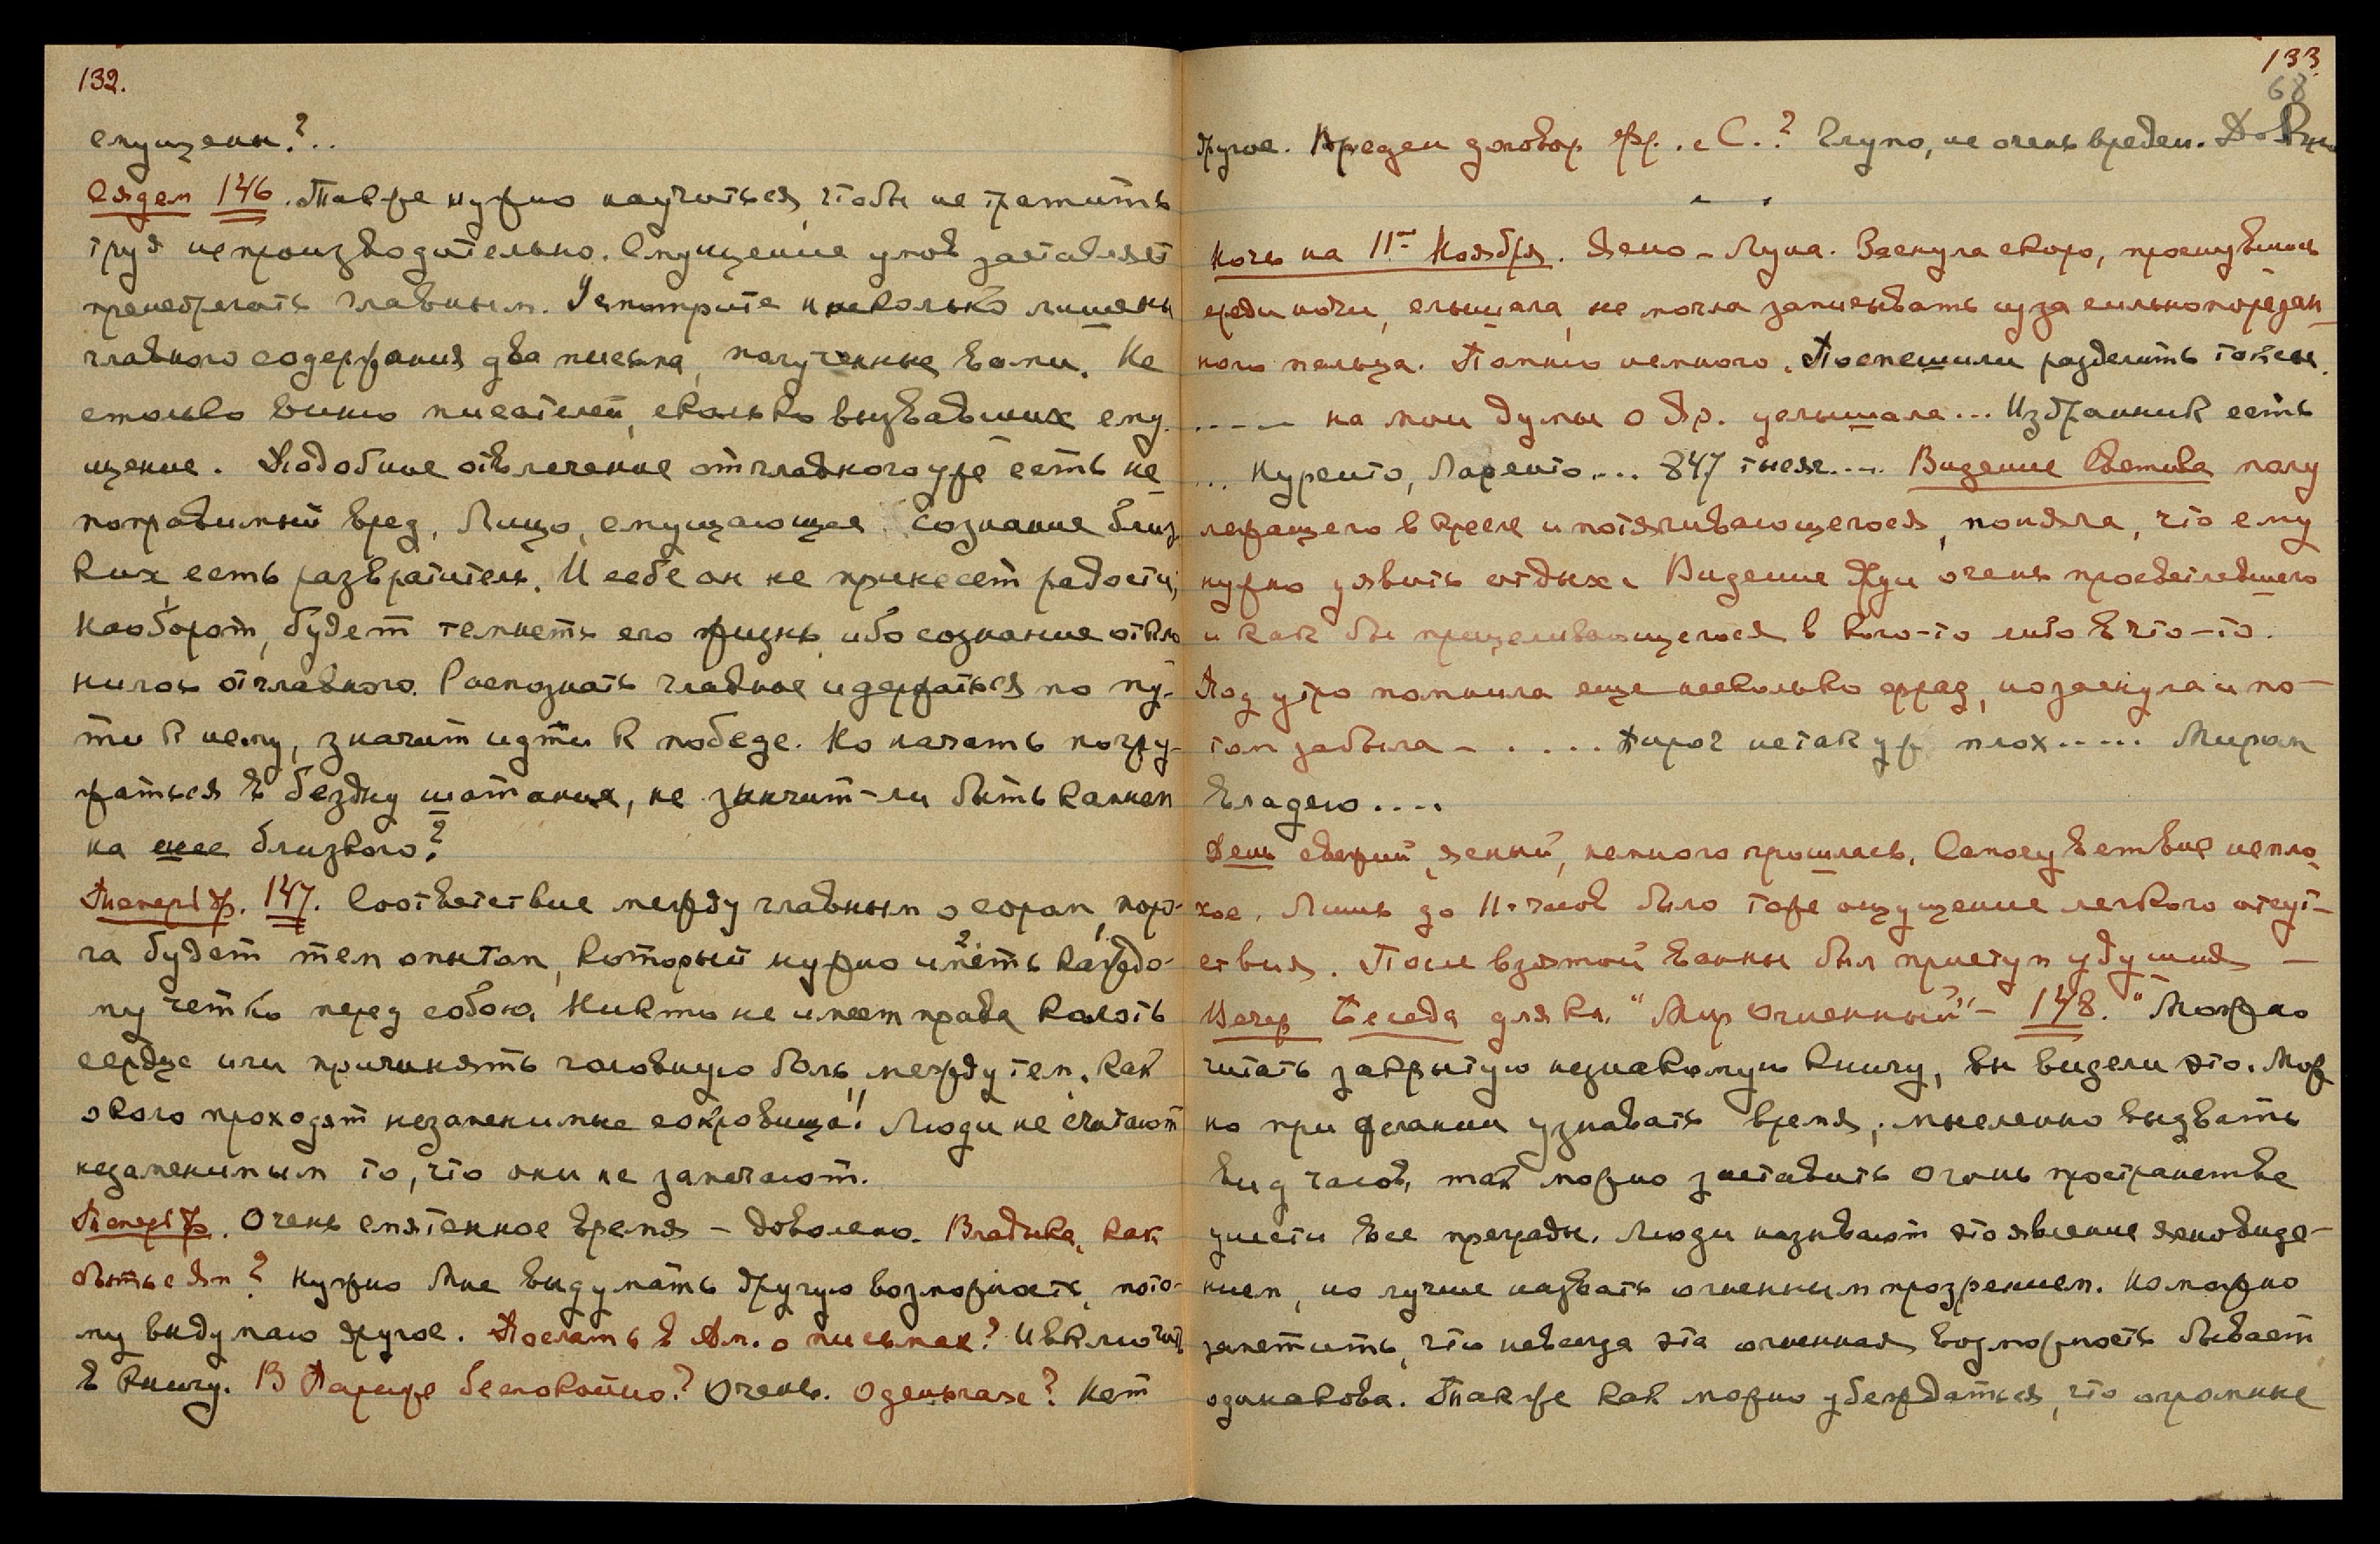 132.
смущенн?..
Сядем 146. Также нужно научиться, чтобы не тратить
труд непроизводительно. Смущение умов заставляет
пренебрегать главным. Усмотрите насколько лишены
главного содержания два письма, полученные вами. Не
столько вино писателей, сколько вызвавших сму-
щение. Подобное отвлечение от главного уже есть не-
поправимый вред. Лицо, смущающее сознание близ-
ких, есть развратитель. И себе он не принесет радости,
наоборот, будет темнеть его жизнь, ибо сознание откло
нилось от главного. Распознать главное и держаться по пу-
ти к нему, значит идти к победе. Но начать погру-
жаться в бездну шатания, не значит-ли быть камнем
на шее близкого?
Теперь др. 147. Соответствие между главным и сором, поро-
га будет тем опытом, который нужно иметь каждо-
му четко перед собою. Никто не имеет права колоть
сердце или причинять головную боль, между тем, как
около проходят незаменимые сокровища! Люди не считают
незаменимым то, что они не замечают.
Теперь др. Очень смятенное время – довольно. Владыка, как
быть с Ам? Нужно Мне выдумать другую возможность, пото-
му выдумаю другое. Послать в Ам. о письмах? И включить
в книгу. В Париже беспокойно? Очень. О деньгах? Нет
133.
68
другое. Вреден договор Фр. с С.? Глупо, не очень вреден. Довольно
Ночь на 11ое Ноября. Ясно – Луна. Заснула скоро, проснувшись
среди ночи, слышала, не могла записывать из за сильно порезан-
ного пальца. Помню немного. Поспешили разделить
..... на мои думы о Яр. услышала... Избранник есть
... Куренто, Ларенто.... 847 тысяч.... Видение Светика полу
лежащего в кресле и потягивающегося, поняла, что ему
нужно явить отдых. Видение Яруи очень просветлевшего
и как бы прицеливающегося в кого-то либо в что-то.
Под утро помнила еще несколько фраз, но заснула и по-
том забыла – ..... Пирог не так уж плох..... Миром
владею....
День свежий, ясный, немного прошлась. Самочувствие непло-
хое. Лишь до 11-часов было тоже ощущение легкого отсут-
ствия. После взятой ванны был приступ удушия –
Вечер Беседа для кн. "Мир Огненный" – 148. "Можно
читать закрытую незнакомую книгу, вы видели это. Мож
но при желании узнавать время, мысленно вызвать
вид часов, так можно заставить огонь пространства
унести все преграды. Люди называют это явление яснoвиде-
нием, но лучше назвать огненным прозрением. Но можно
заметить, что не всегда эта огненная возможность бывает
одинакова. Также как можно убеждаться, что огромные